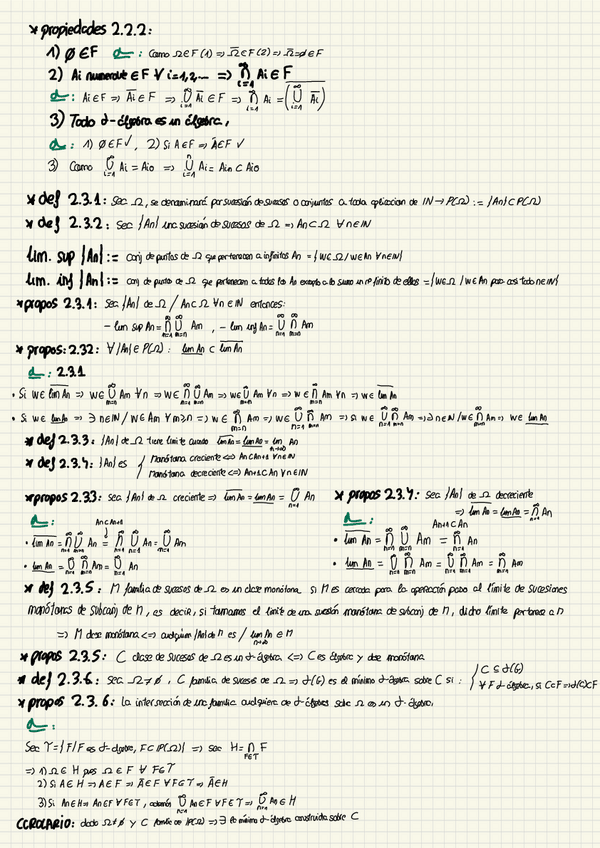 * propiedades 2.2.2:
1) ∅∈F d: Como Ω∈F (1) => Ω̅∈F (2) => Ω̅=∅∈F
2) Ai numerable ∈ F ∀ i=1,2,... => ⋂_{i=1}^∞ Ai ∈ F
d: Ai∈F => A̅i∈F => ⋃_{i=1}^∞ A̅i∈F => ⋂_{i=1}^∞ Ai = \overline{(⋃_{i=1}^∞ A̅i)}
3) Toda σ-álgebra es un álgebra,
d: 1) ∅∈F✓, 2) Si A∈F => A̅∈F ✓
3) Como ⋃_{i=1}^∞ Ai = Aio => ⋃_{i=1}^n Ai = Ain ⊂ Aio
* def 2.3.1: Sea Ω, se denominará por sucesión de sucesos o conjuntos a toda aplicacion de IN → P(Ω) := {An} ⊂ P(Ω)
* def 2.3.2: Sea {An} una sucesión de sucesos de Ω => An⊂Ω ∀n∈IN
lim. sup {An} := conj de puntos de Ω que pertenecen a infinitos An = {w∈Ω/w∈An ∀n∈IN}
lim. inf {An} := conj de puntos de Ω que pertenecen a todos los An excepto a lo sumo un nº finito de ellos = {w∈Ω / w∈An para casi todo n∈IN}
* propos 2.3.1: Sea {An} de Ω / An⊂Ω ∀n∈IN entonces:
- lim sup An = ⋂_{n=1}^∞ ⋃_{m=n}^∞ Am , - lim inf An = ⋃_{n=1}^∞ ⋂_{m=n}^∞ Am
* propos: 2.32: ∀{An}∈P(Ω): \underline{lim} An ⊂ \overline{lim} An
d: 2.3.1
• Si w∈ \overline{lim} An => w∈ ⋃_{m=n}^∞ Am ∀n => w∈ ⋂_{n=1}^∞ ⋃_{m=n}^∞ Am => w∈ ⋃_{m=n}^∞ Am ∀n => w∈ Am ∀n => w∈ \overline{lim} An
• Si w∈ \underline{lim} An => ∃n∈IN / w∈Am ∀m≥n => w∈ ⋂_{m=n}^∞ Am => w∈ ⋃_{n=1}^∞ ⋂_{m=n}^∞ Am => si w∈ ⋃_{n=1}^∞ ⋂_{m=n}^∞ Am => ∃n∈IN / w∈ ⋂_{m=n}^∞ Am => w∈ \underline{lim} An
* def 2.3.3: {An} de Ω tiene limite cuando \overline{lim} An = \underline{lim} An = lim_{n→∞} An
* def 2.3.4: {An} es { Monótona creciente <=> An⊂An+1 ∀n∈IN
Monótona decreciente <=> An+1⊂An ∀n∈IN
* propos 2.33: sea {An} de Ω creciente => \overline{lim} An = \underline{lim} An = ⋃_{n=1}^∞ An
d: An⊂An+1
• \overline{lim} An = ⋂_{n=1}^∞ ⋃_{m=n}^∞ An = ⋂_{n=1}^∞ ⋃_{m=1}^∞ Am = ⋃_{m=1}^∞ Am
• \underline{lim} An = ⋃_{n=1}^∞ ⋂_{m=n}^∞ Am = ⋃_{n=1}^∞ An
* propos 2.3.4: Sea {An} de Ω decreciente
=> \overline{lim} An = \underline{lim} An = ⋂_{n=1}^∞ An
d: An+1⊂An
• \overline{lim} An = ⋂_{n=1}^∞ ⋃_{m=n}^∞ Am = ⋂_{n=1}^∞ An
• \underline{lim} An = ⋃_{n=1}^∞ ⋂_{m=n}^∞ Am = ⋃_{n=1}^∞ ⋂_{m=1}^∞ Am = ⋂_{m=1}^∞ Am
* def 2.3.5: M familia de sucesos de Ω es un clase monótona si M es cerrada para la operación paso al límite de sucesiones
monótonas de subconj de M, es decir, si tomamos el limite de una sucesión monótona de subconj de M, dicho límite pertenece a M
=> M clase monótona <=> cualquier {An} de M es / lim_{n→∞} An ∈ M
* propos 2.3.5: C clase de sucesos de Ω es un σ-álgebra <=> C es álgebra y clase monótona
* def 2.3.6: Sea Ω≠∅, C familia de sucesos de Ω => σ(C) es la mínima σ-álgebra sobre C si: { C⊆σ(C)
∀F σ-álgebra, si C⊂F => σ(C)⊂F
* propos 2.3.6: la intersección de una familia cualquiera de σ-álgebras sobre Ω es un σ-álgebra,
d:
Sea T={F/F es σ-álgebra, F⊂P(Ω)} => sea H= ⋂_{F∈T} F
=> 1) Ω∈H pues Ω∈F ∀F∈T
2) Si A∈H => A∈F => A̅∈F ∀F∈T => A̅∈H
3) Si An∈H => An∈F ∀F∈T, además ⋃_{n=1}^∞ An∈F ∀F∈T => ⋃_{n=1}^∞ An∈H
COROLARIO: dado Ω≠∅ y C familia de P(Ω) => ∃ la mínima σ-álgebra construida sobre C